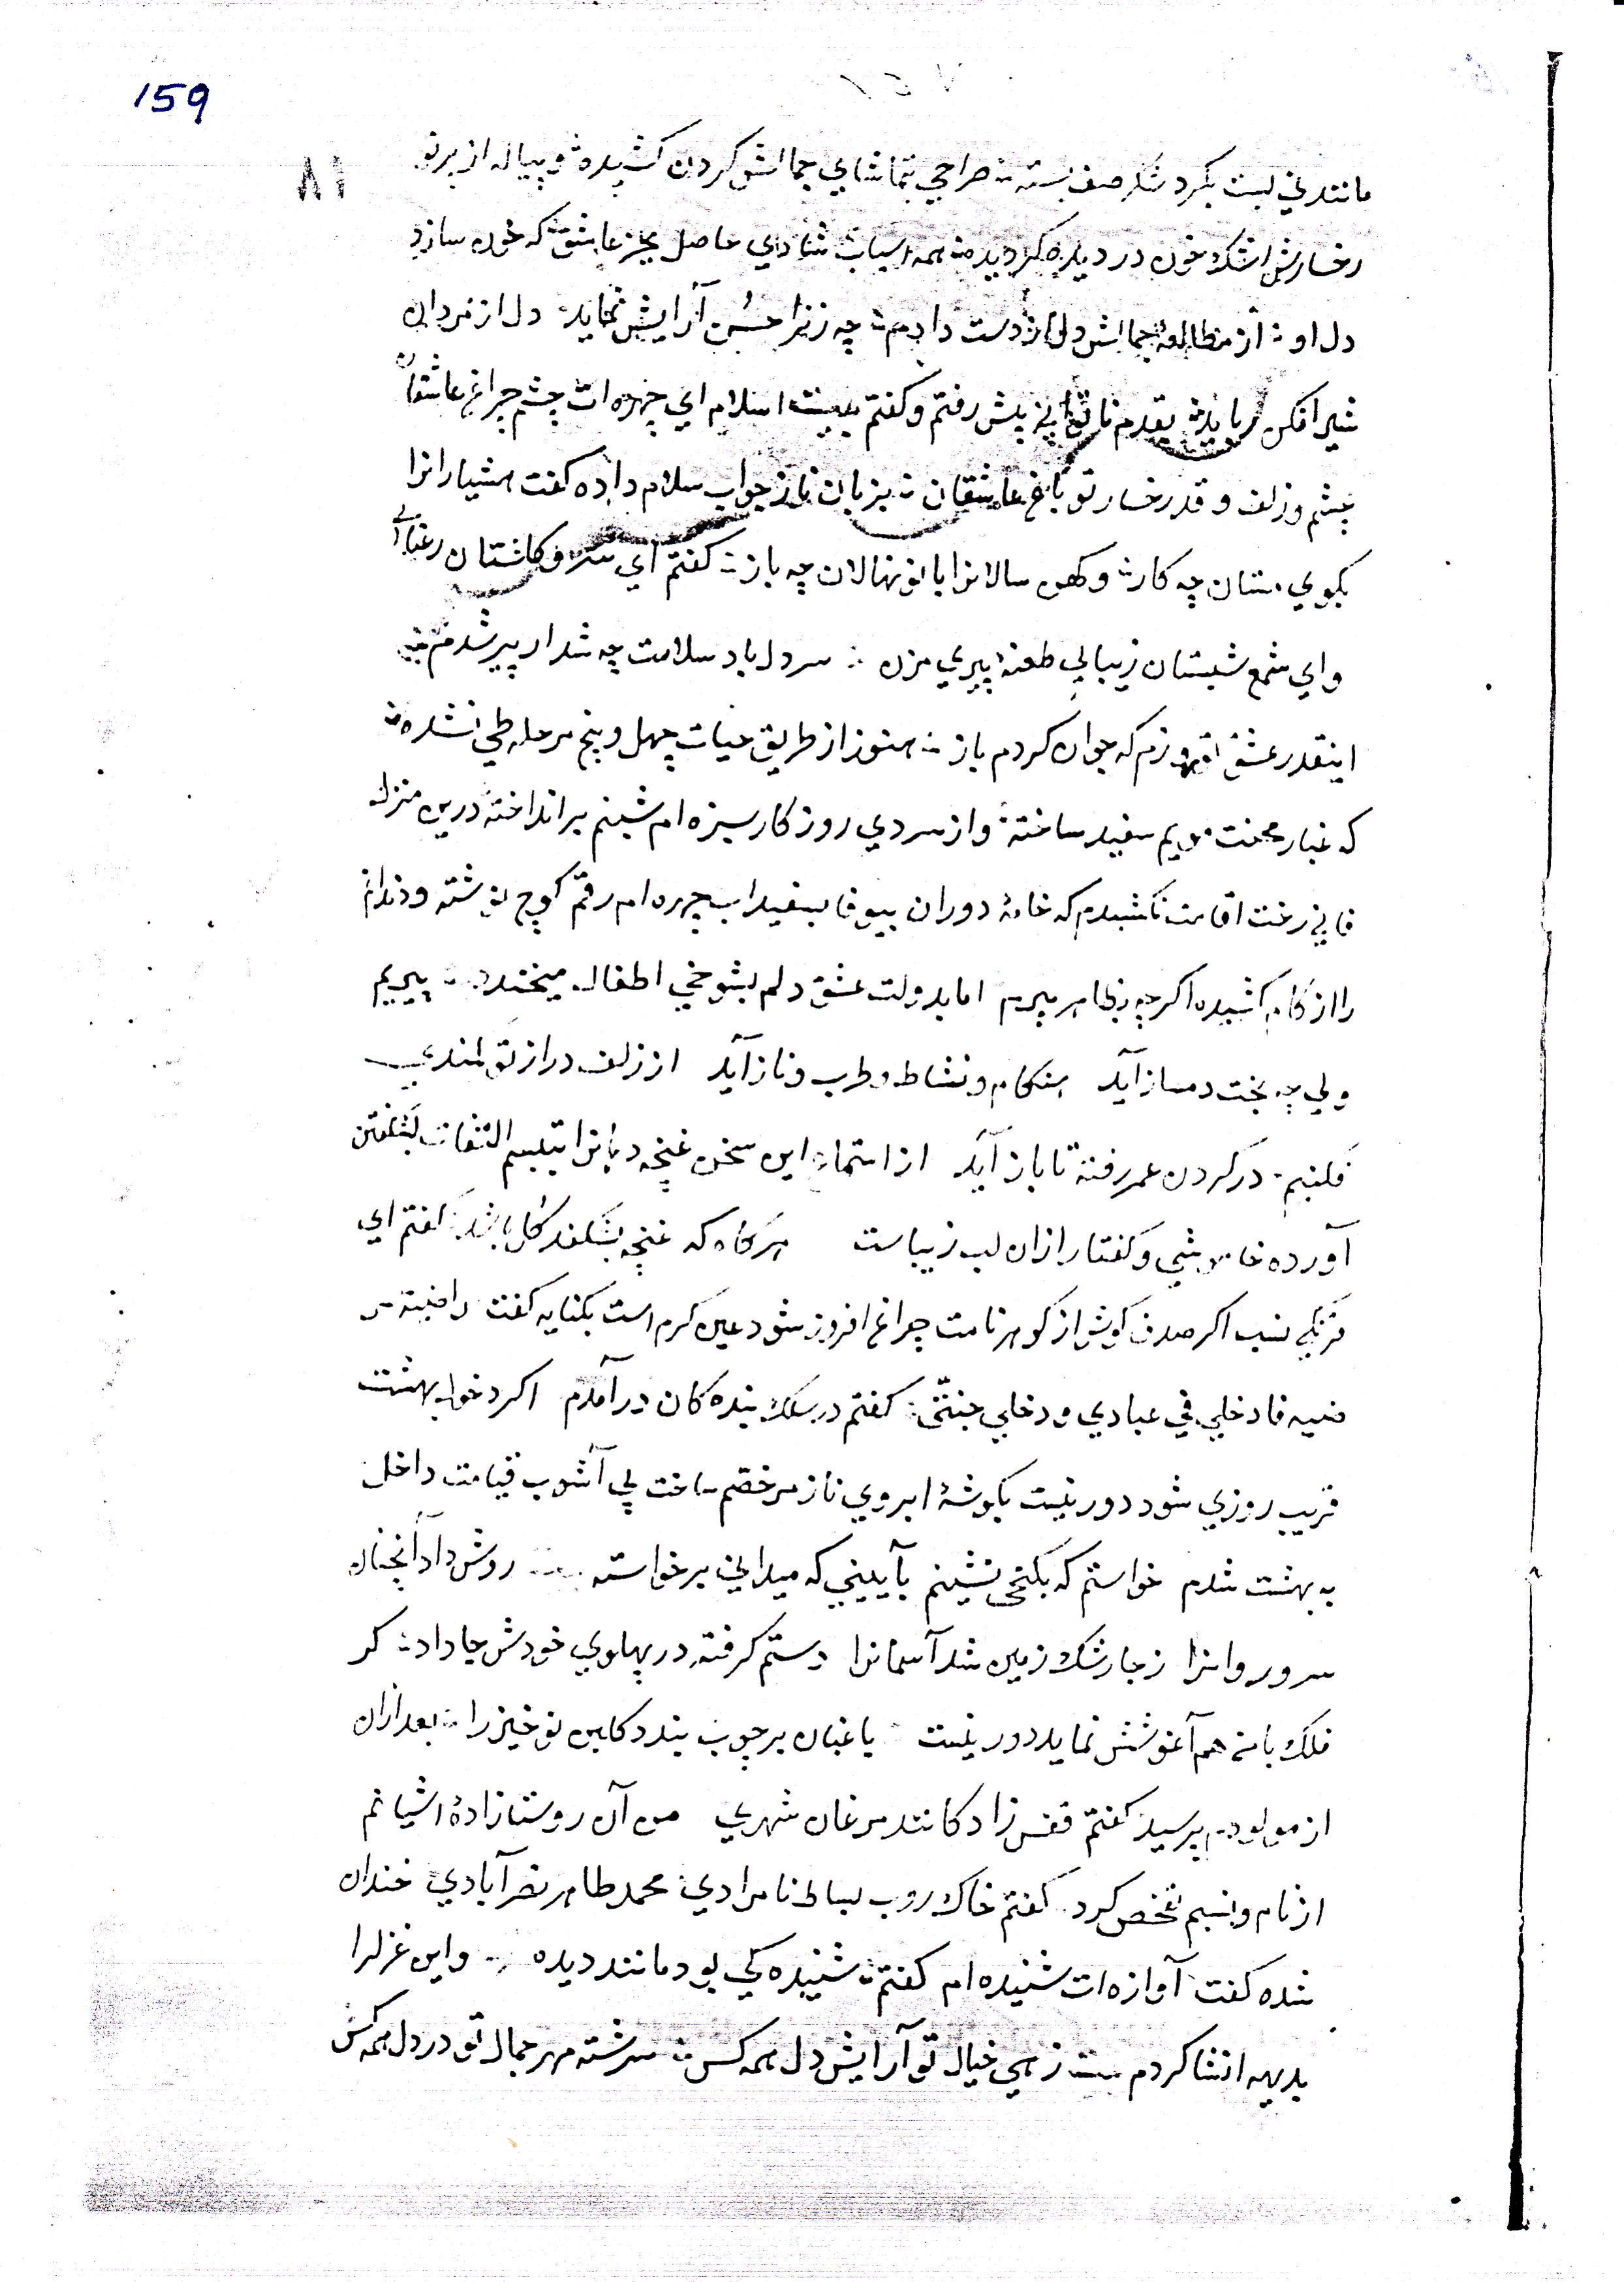 159
۸۱
مانند نی لبت بکرد شکر صف بسته صراحی بتماشای جمالش کردن کشیده و پیاله از پرتو
رخسارش اشک خون در دیده کردیده همه اسباب شادی حاصل بجز عاشق که خون سازد
دل او از مطالعهٔ جمالش دل از دست دادم چه زنرا حسن آرایش نماید دل از مردان
شیر افکن رباید بقدم ناتوانی پیش رفتم و کفتم بیت السلام ای چهره ات چشم چراغ عاشقان
چشم و زلف و قد رخسار تو باغ عاشقان بزبان ناز جواب سلام داده کفت هشیارانرا
بکوی مستان چه کار و کهن سالانرا با نونهالان چه باز کفتم ای سرو کلستان رعنایی
وای شمع شبستان زیبایی طعنهٔ پیری مزن سر دل باد سلامت چه شد ار پیر شدم
اینقدر عشق نورزم که جوان کردم باز هنوز از طریق حیات چهل و پنج مرحله طی نشده
که غبار محنت مویم سفید ساخته و از سردی روزکار سبزه ام شبنم بر انداخته درین منزل
فانی رخت اقامت نکشیدم که خامهٔ دوران بیوفا بسفیداب چهره ام رقم کوچ نوشته و دندانم
را از کام کشیده اکرچه بظاهر پیرم اما بدولت عشق دلم بشوخی اطفال میخندد پیریم
ولی چو بخت دمساز آید هنکام و نشاط و طرب و ناز آید از زلف دراز تو کمندی
فکنیم در کردن عمر رفته تا باز آید از استماع این سخن غنچه دهانرا بتبسم التفات بشکفتن
آورده خاموشی و کفتار ازان لب زیباست هرکاه که غنچه بشکفد کل باشد کفتم ای
فرنکی نسب اکر صدف کوش از کوهر نامت چراغ افروز شود عین کرم است بکنایه کفت راضیة مر
ضیه فادخلی فی عبادی و دخلی جنتی کفتم در سلک بنده کان در آمدم اکر دخول بهشت
قریب روزی شود دور نیست بکوشهٔ ابروی ناز مرخصم ساخت پی آشوب قیامت داخل
به بهشت شدم خواستم که بکنجی نشینم بآیینی که میدانی برخواسته روش داد آنچنان
سرو روانرا زجا رشک زمین شد آسمانرا دستم کرفته در پهلوی خودش جا داد کر
فلک با من هم آغوشش نماید دور نیست باغبان بر چوب بندد کلبن نوخیز را بعد ازان
از مولودم پرسید کفتم قفس زاد کانند مرغان شهری من آن روستا زادهٔ آشیانم
از نام و نسبم تفحص کرد کفتم خاک روب بساط نامرادی محمد طاهر نصرآبادی خندان
شده کفت آوازه ات شنیده ام کفتم شنیده کی بود مانند دیده واین غزلرا
بدیهه انشا کردم بیت زهی خیال تو آرایش دل همه کس سرشته مهر جمال تو در دل همه کس